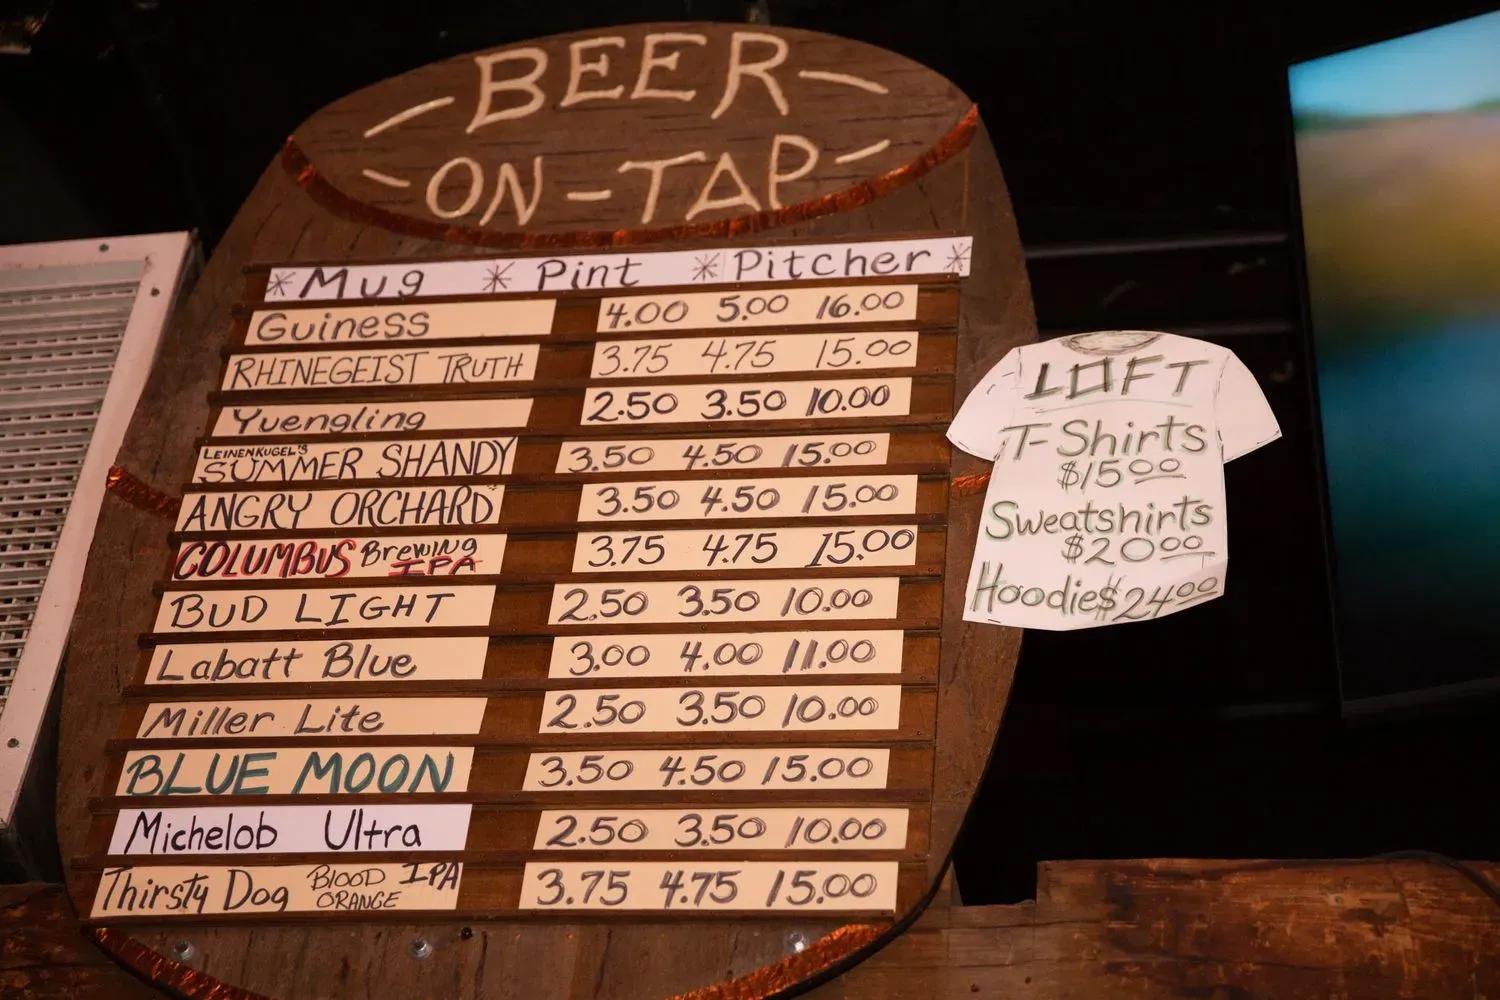 BEER
ON-TAP
* Mug * Pint * Pitcher *
Guiness 4.00 5.00 16.00
RHINEGEIST TRUTH 3.75 4.75 15.00
Yuengling 2.50 3.50 10.00
LEINENKUGEL'S
SUMMER SHANDY 3.50 4.50 15.00
ANGRY ORCHARD 3.50 4.50 15.00
COLUMBUS Brewing
IPA 3.75 4.75 15.00
BUD LIGHT 2.50 3.50 10.00
Labatt Blue 3.00 4.00 11.00
Miller Lite 2.50 3.50 10.00
BLUE MOON 3.50 4.50 15.00
Michelob Ultra 2.50 3.50 10.00
Thirsty Dog BLOOD IPA
ORANGE 3.75 4.75 15.00
LOFT
T-Shirts
$15.00
Sweatshirts
$20.00
Hoodie$ 24.00